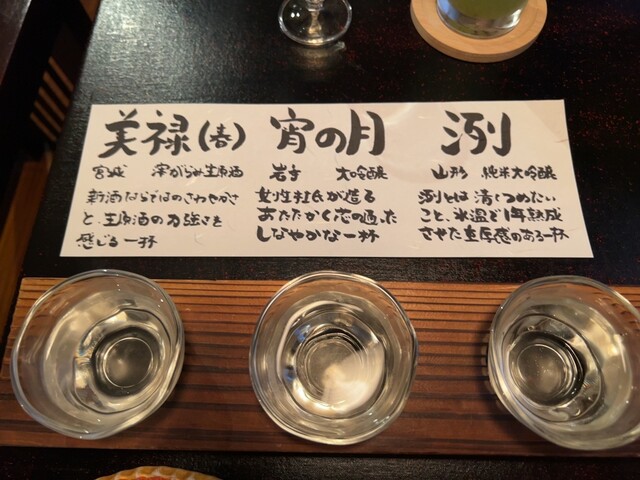 美禄(春)
宮城 本がらみ生原酒
新酒ならではのさわやかさ
と、生原酒の力強さを
感じる一杯
宵の月
岩手 大吟醸
女性杜氏が造る
あたたかく芯の通った
しなやかな一杯
洌
山形 純米大吟醸
洌とは清くつめたい
こと、氷温で1年熟成
させた重厚感のある一杯